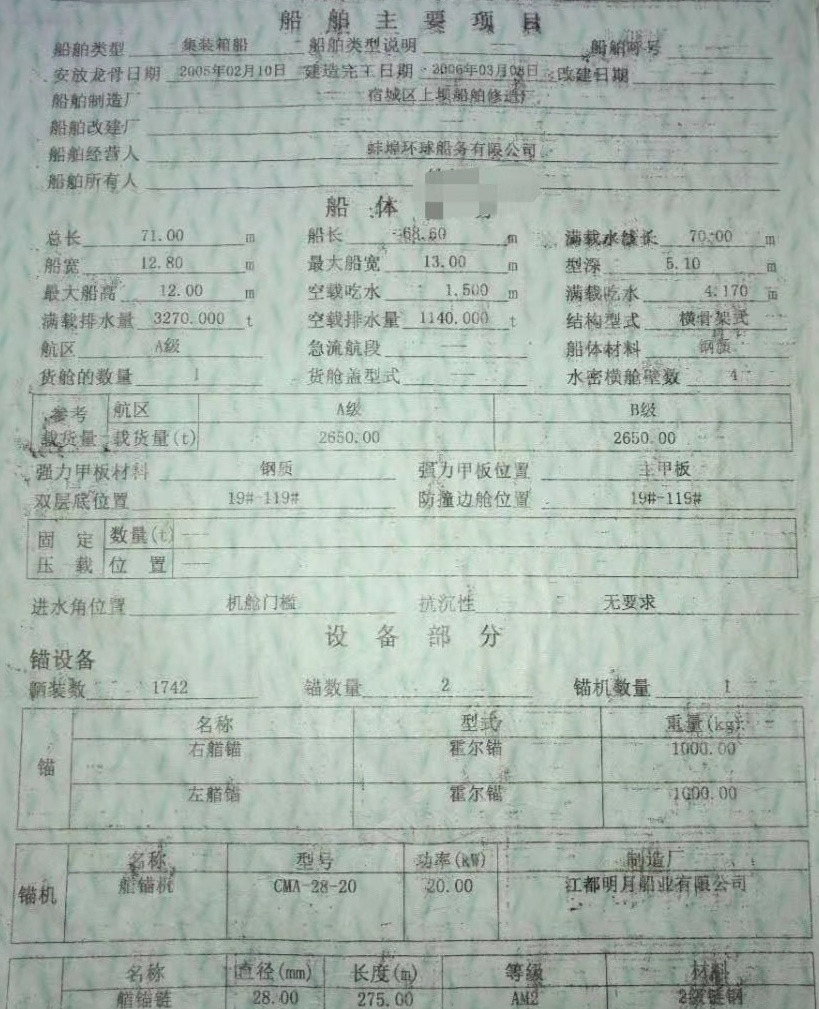 船舶主要项目
船舶类型 集装箱船 船舶类型说明 —— 船舶呼号 ——
安放龙骨日期 2005年02月10日 建造完工日期 2006年03月08日 改建日期 ——
船舶制造厂 宿城区上坝船舶修造厂
船舶改建厂 ——
船舶经营人 蚌埠环球船务有限公司
船舶所有人
船体 分
总长 71.00 m 船长 68.60 m 满载水线长 70.00 m
船宽 12.80 m 最大船宽 13.00 m 型深 5.10 m
最大船高 12.00 m 空载吃水 1.500 m 满载吃水 4.170 m
满载排水量 3270.000 t 空载排水量 1140.000 t 结构型式 横骨架式
航区 A级 急流航段 —— 船体材料 钢质
货舱的数量 1 货舱盖型式 —— 水密横舱壁数 4
参考 航区 A级 B级
载货量 载货量(t) 2650.00 2650.00
强力甲板材料 钢质 强力甲板位置 主甲板
双层底位置 19#-119# 防撞边舱位置 19#-119#
固定 数量(t) ——
压载 位置 ——
进水角位置 机舱门槛 抗沉性 无要求
设备部分
锚设备
舾装数 1742 锚数量 2 锚机数量 1
名称 型式 重量(kg)
锚
右艏锚 霍尔锚 1000.00
左艏锚 霍尔锚 1000.00
名称 型号 功率(kW) 制造厂
锚机 艏锚机 CMA-28-20 20.00 江都明月船业有限公司
名称 直径(mm) 长度(m) 等级 材料
艏锚链 28.00 275.00 AM2 2级链钢